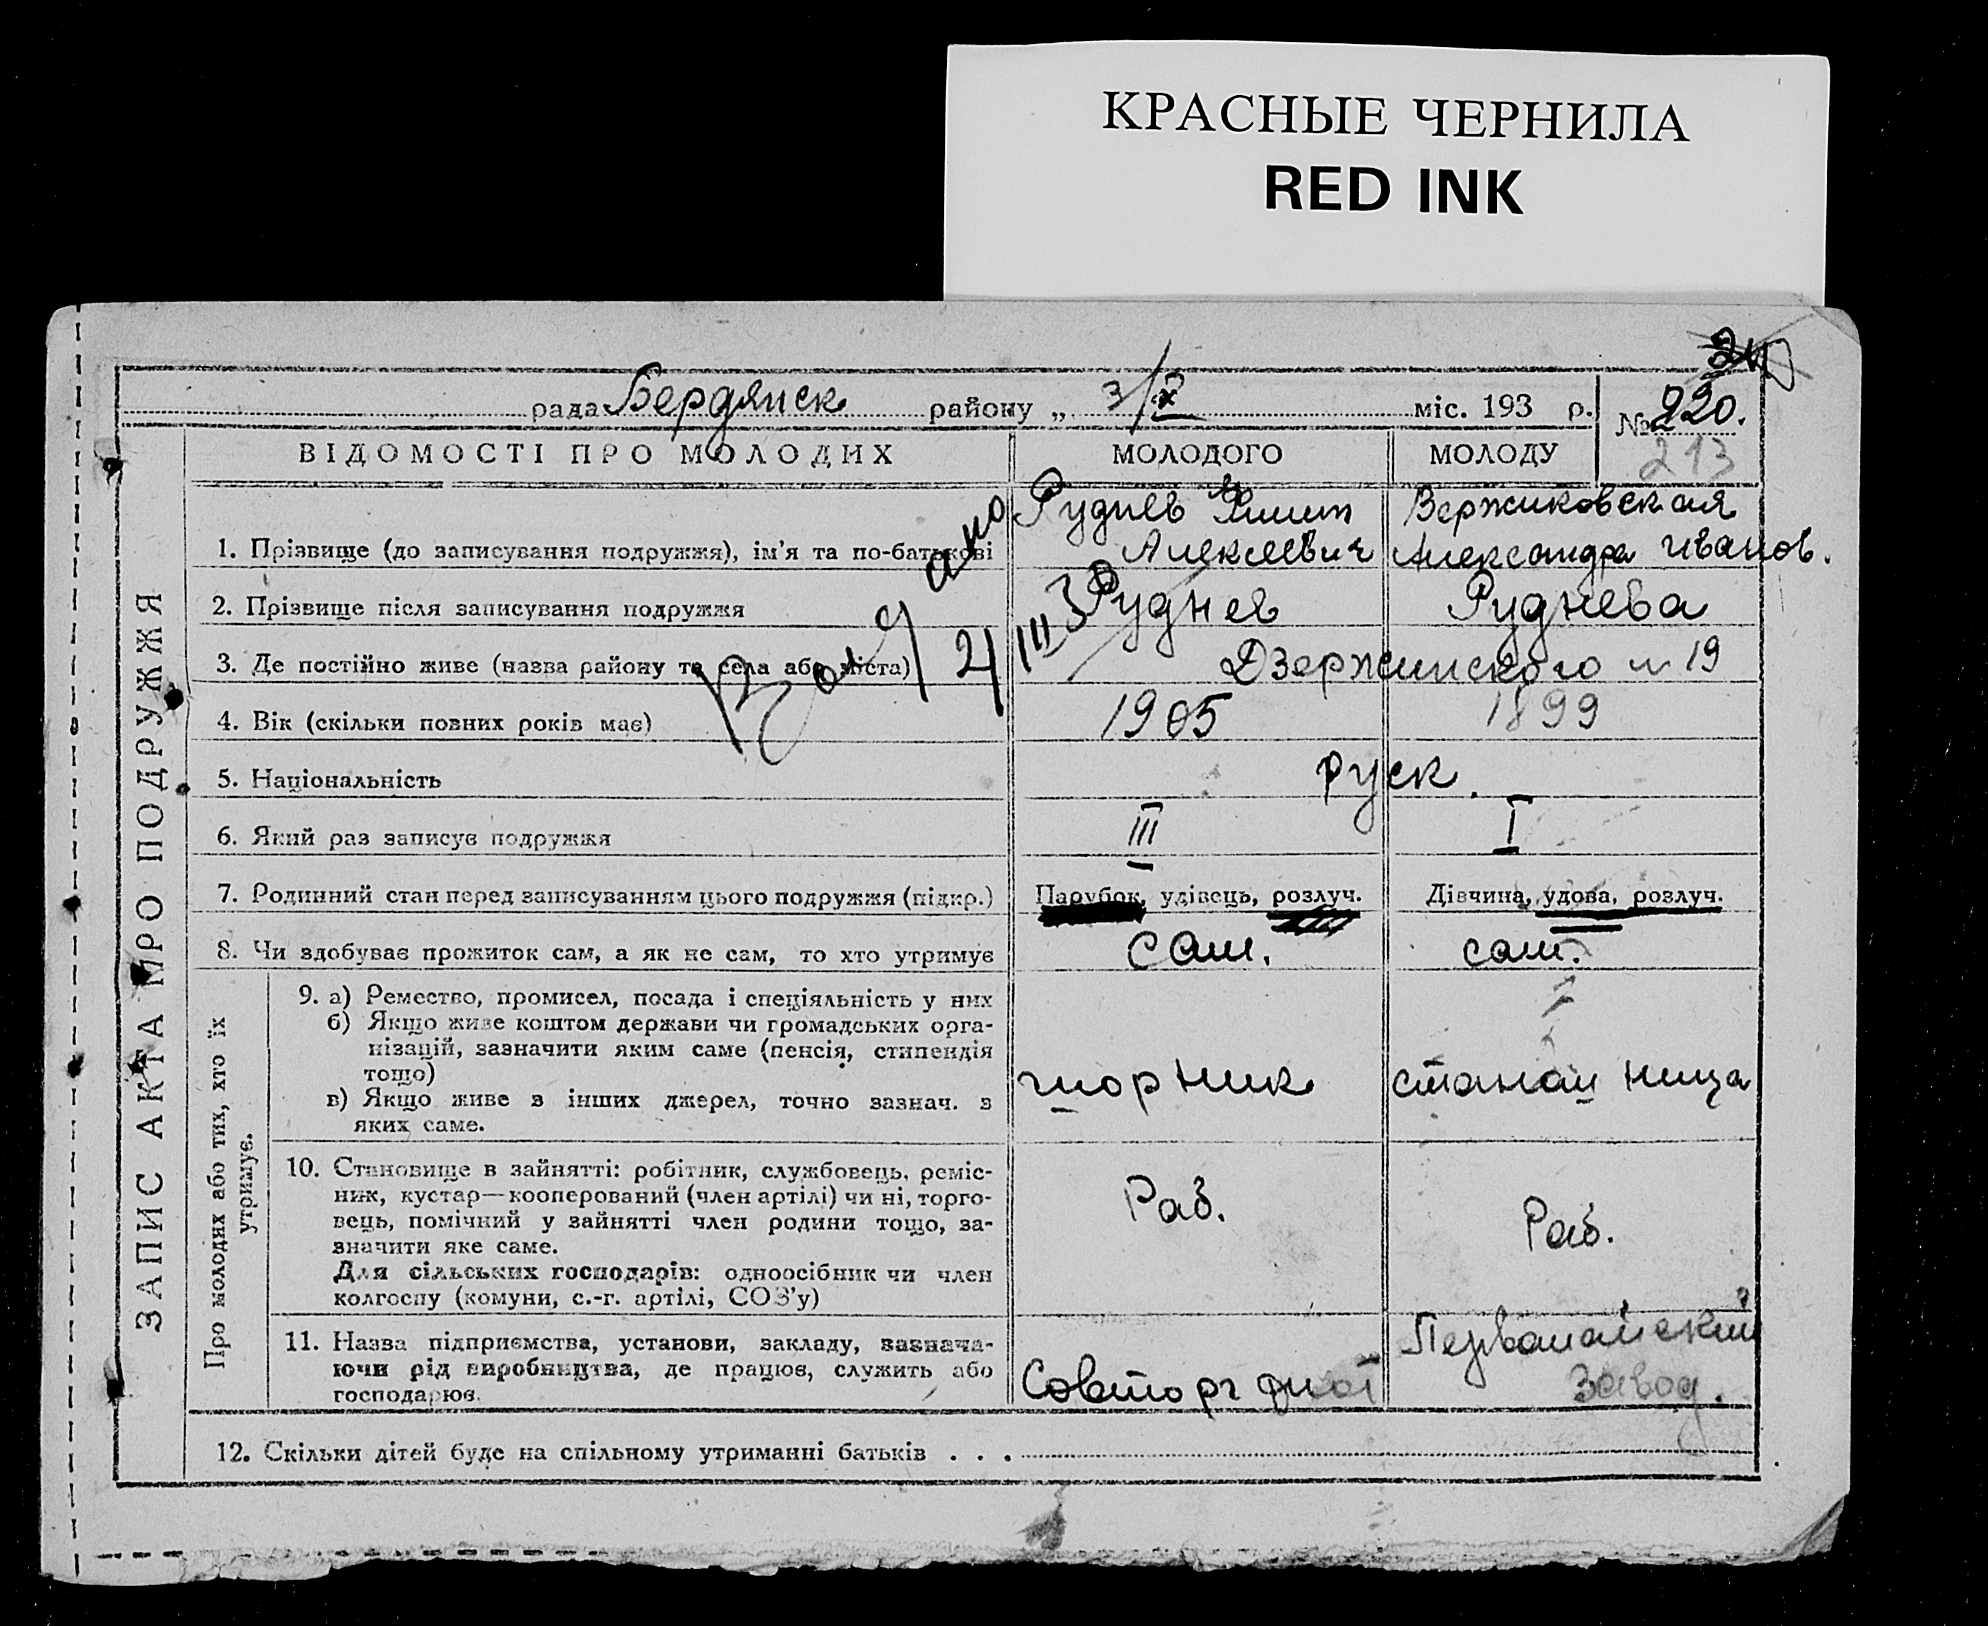 КРАСНЫЕ ЧЕРНИЛА
RED INK
рада Бердянск району „ 3/X міс. 193 р.
№ 220.
213
ЗАПИС АКТА ПРО ПОДРУЖЖЯ
ВІДОМОСТІ ПРО МОЛОДИХ МОЛОДОГО МОЛОДУ
1. Прізвище (до записування подружжя), ім'я та по-батькові
Руднев
Алексеевич
Вержиковская
Александра Иванов.
2. Прізвище після записування подружжя Руднев Руднева
3. Де постійно живе (назва району та села або міста) Дзержинского 19
4. Вік (скільки повних років має) 1905 1899
5. Національність руск.
6. Який раз записує подружжя III I
7. Родинний стан перед записуванням цього подружжя (підкр.) Парубок, удівець, розлуч. Дівчина, удова, розлуч.
8. Чи здобуває прожиток сам, а як не сам, то хто утримує сам. сам.
Про молодих або тих, хто їх
утримує.
9. а) Ремество, промисел, посада і спеціяльність у них
б) Якщо живе коштом держави чи громадських орга-
нізацій, зазначити яким саме (пенсія, стипендія
тощо)
в) Якщо живе з інших джерел, точно зазнач. з
яких саме.
шорник
10. Становище в зайнятті: робітник, службовець, реміс-
ник, кустар—кооперований (член артілі) чи ні, торго-
вець, помічний у зайнятті член родини тощо, за-
значити яке саме.
Для сільських господарів: одноосібник чи член
колгоспу (комуни, с.-г. артілі, СОЗ'у)
Раб.
Раб.
11. Назва підприємства, установи, закладу, зазнача-
ючи рід виробництва, де працює, служить або
господарює.
Совторгфлот
Первомайский
завод.
12. Скільки дітей буде на спільному утриманні батьків . . .